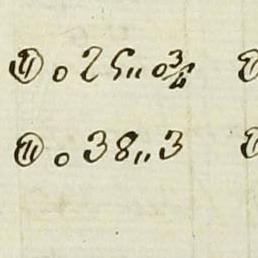 ⑪ 0 25 „ 0 3/4
⑪ 0 38 „ 3